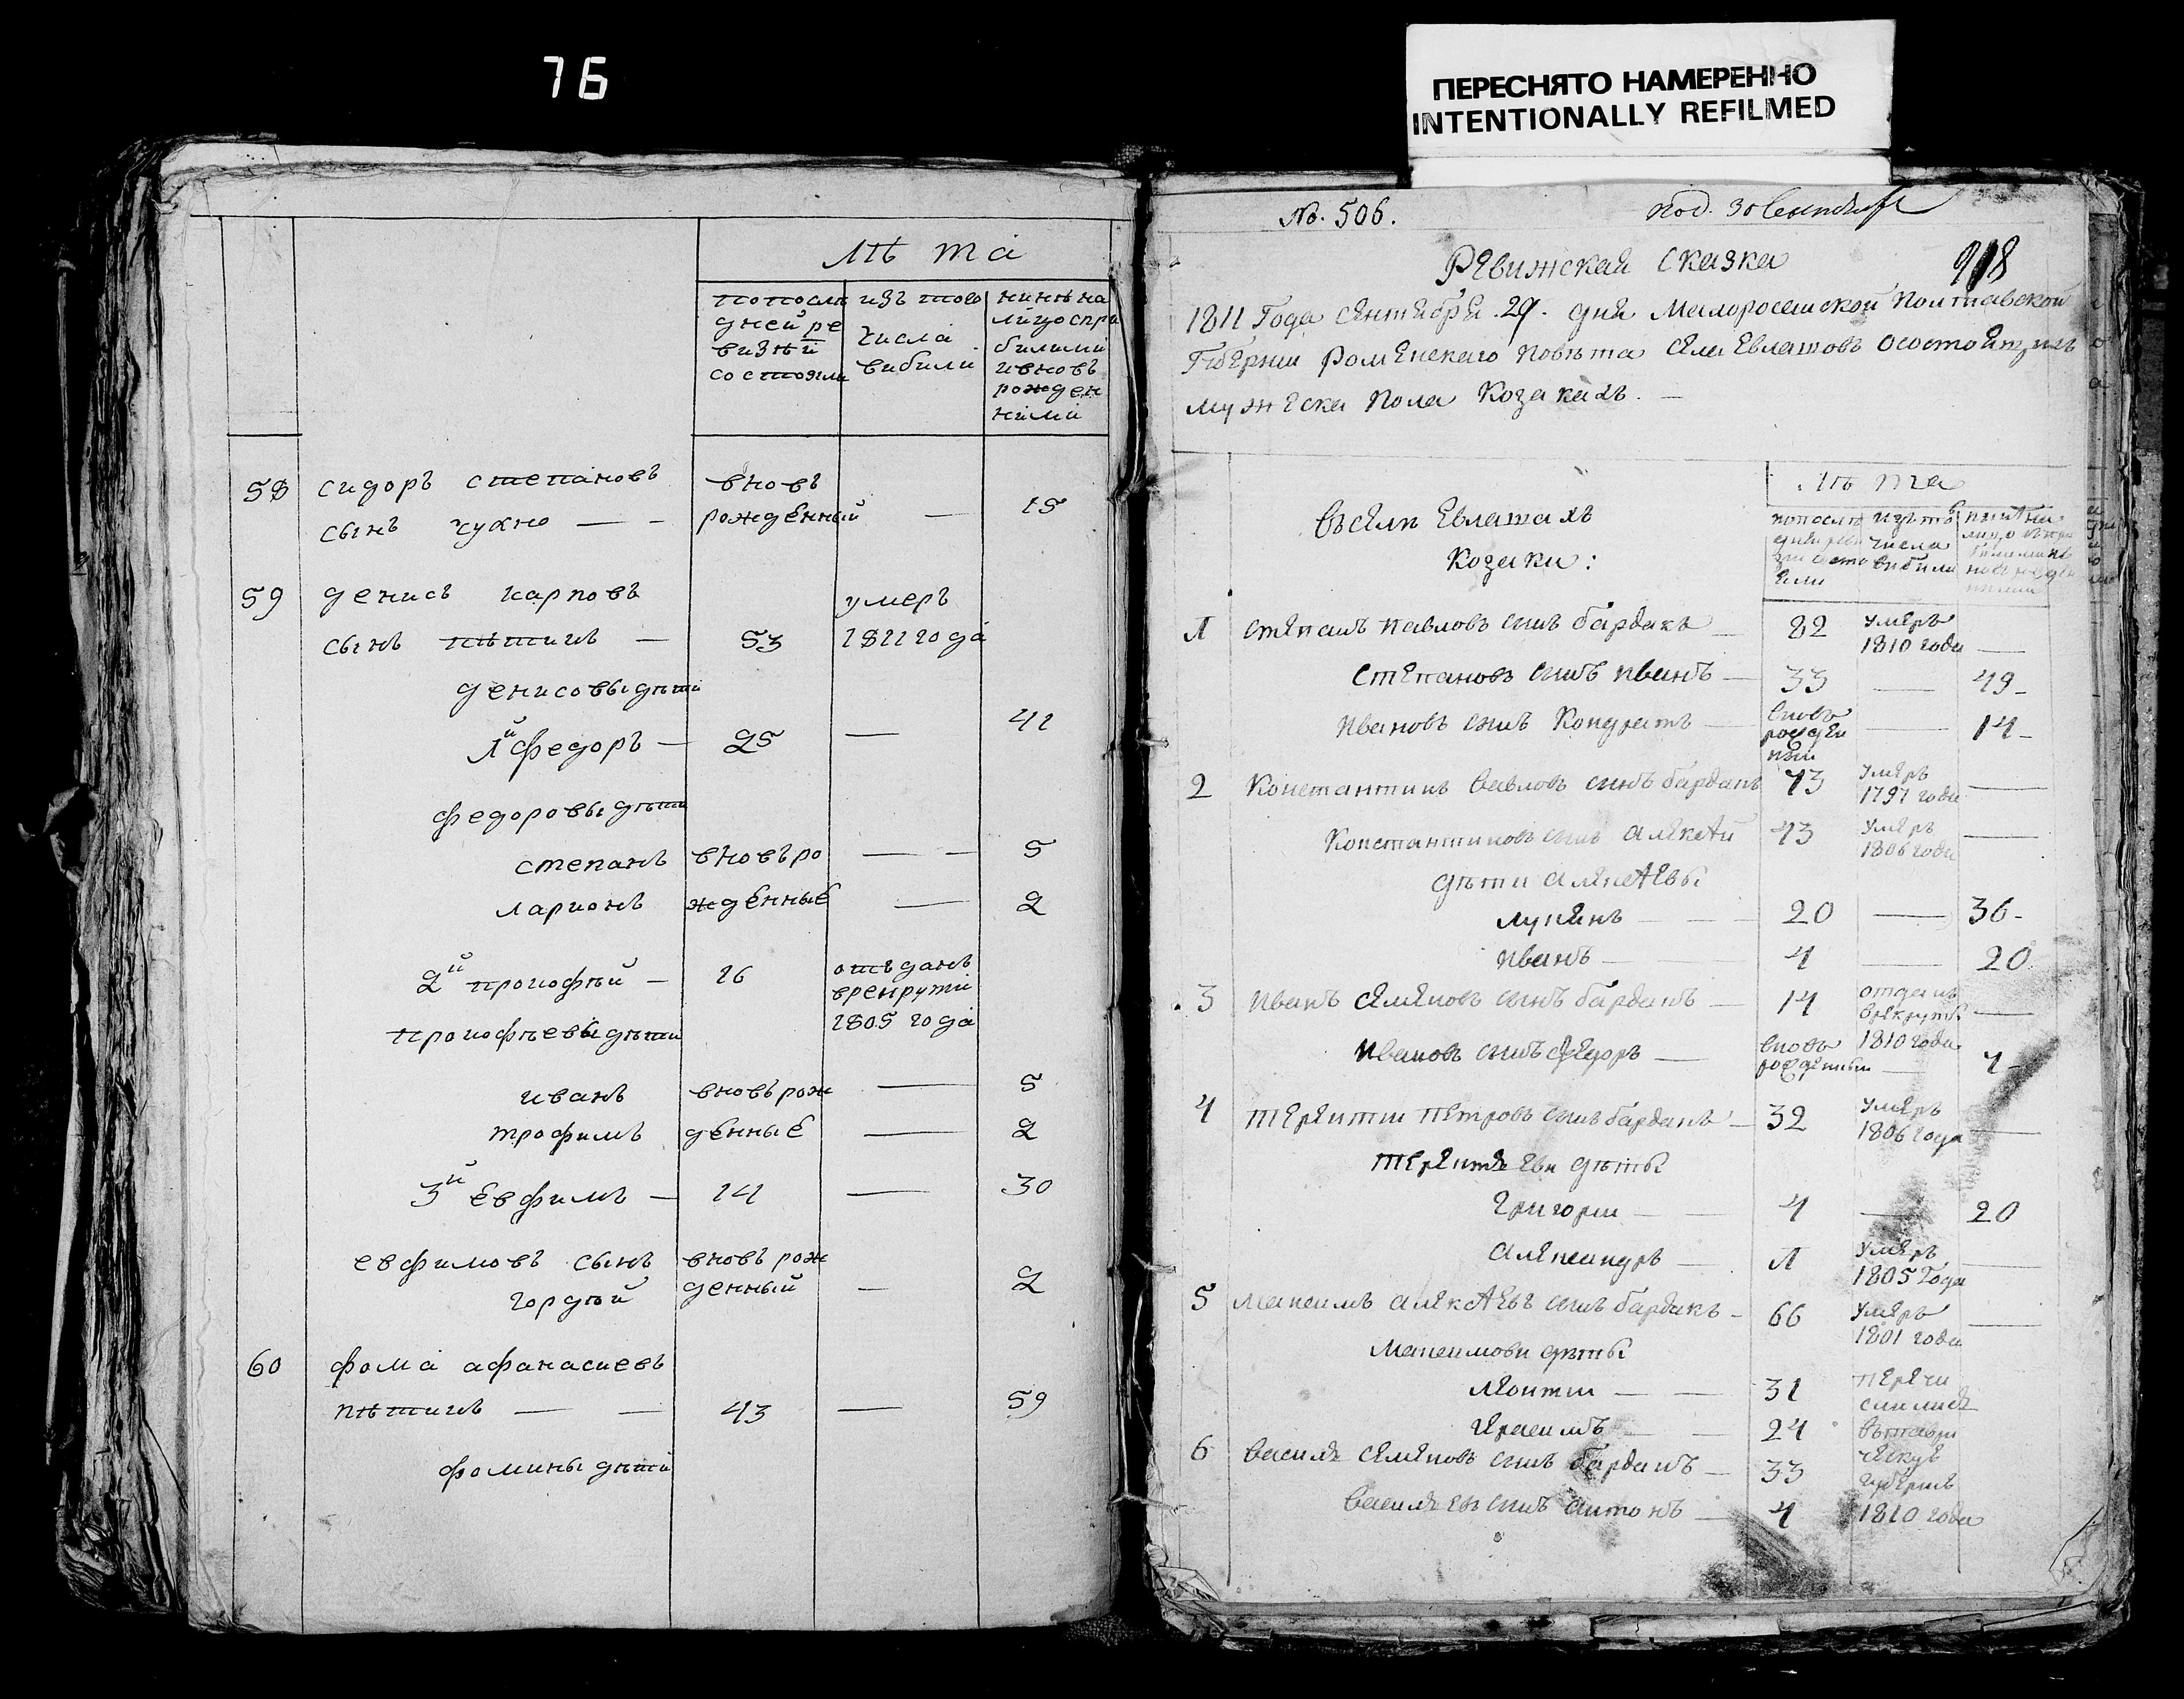 76
ПЕРЕСНЯТО НАМЕРЕННО
INTENTIONALLY REFILMED
лѣта
попосле дней ре визѣй состояли
изъ того числа вибили
нинѣ на лицо спри билими ивновь рожден ними
58 сидоръ степановъ вновь
сынъ чухно — — рожденный — 15
59 денисъ карповъ умеръ
сынъ — 53 1811 года
денисовы дѣти
1й федоръ — 25 — 41
федоровы дѣти
степанъ вновъ ро — — 5
ларионъ жденные — 2
2й прокофѣй — 16 отъданъ
врекрути
прокофѣевы дѣти 1805 года
иванъ вновъ рож — 5
трофимъ денные — 2
3й евфимъ — 14 — 30
евфимовъ сынъ вновъ рож
гордѣй денный — 2
60 фома афанасиевъ
— — 43 — 59
фомины дѣти
№. 506.
под. 30 Сентября
918
Ревижская сказка
1811 Года сентября 29. дня Малоросийской Полтавской
Губернии Роменскаго повѣта села Евлашовъ осостоящихъ
мужеска пола Козакахъ. —
лѣта
Въселѣ Евлашахъ
Козаки:
попослѣ дней реви зии состо яли
изъ того числа вибили
1 Степанъ павловъ синъ бардакъ — 82 умеръ
1810 года —
Степановъ синъ иванъ — 33 — 49 -
ивановъ синъ Кондратъ — вновь рожден нии — 14 -
2 Константинъ Павловъ синъ бардакъ 73 умеръ
1797 года —
Константиновъ синъ алексѣй 43 умеръ
1806 года —
дѣти алексѣевы
лукянъ — — 20 — 36 -
иванъ — 4 — 20
3 иванъ семеновъ синъ бардакъ — 14 отданъ
врекруты —
1810 года
ивановъ синъ федоръ — вновь рожденныи — 4 -
4 терентии петровъ синъ бардакъ — 32 умеръ
1806 года —
терентиеви дѣты
Григории — — 4 — 20
александръ — 1 умеръ
1805 Года —
5 Максимъ алексѣевъ синъ бардакъ — 66 умеръ
1801 года —
Максимови дѣты
леонтии — — 31 перечи
слилися
герасимъ — 24 вътаври
ческуе
6 Василь семеновъ синъ бардакъ — 33 губерние
Василевъ синъ антонъ — 4 1810 года